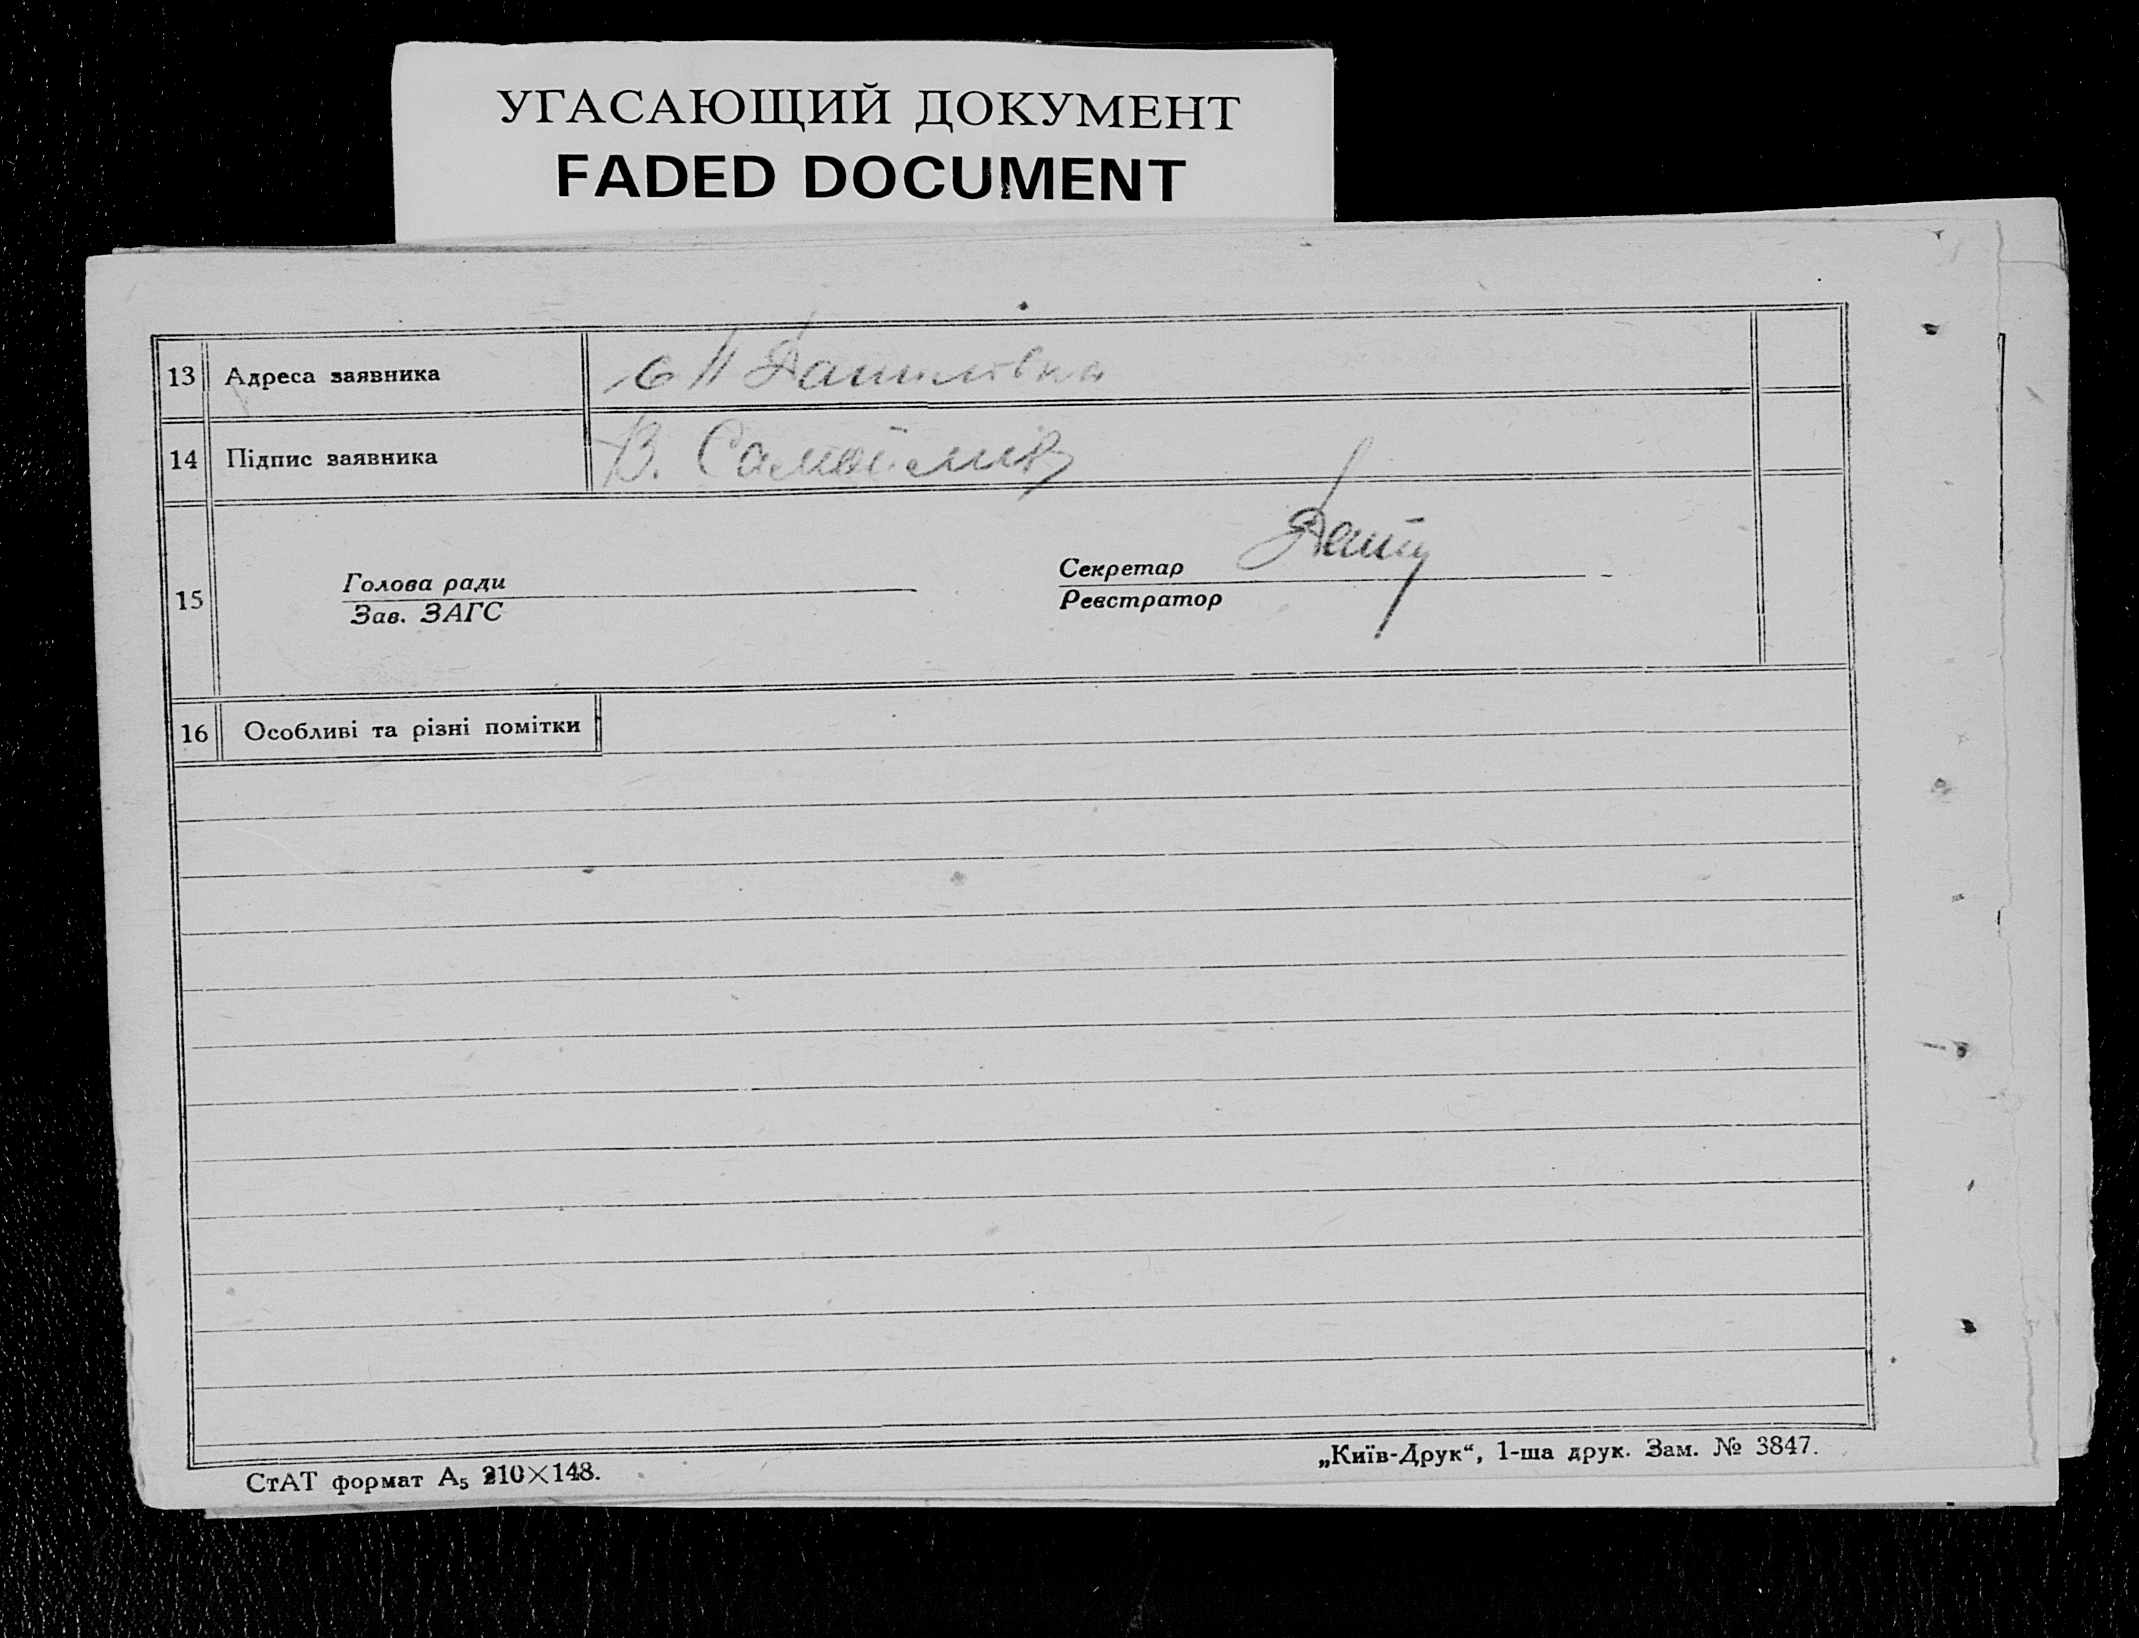 УГАСАЮЩИЙ ДОКУМЕНТ
FADED DOCUMENT
13 Адреса заявника с Данилівка
14 Підпис заявника В. Самойлив
15 Голова ради
Зав. ЗАГС
Секретар
Реєстратор
16 Особливі та різні помітки
СтАТ формат А5 210×148.
„Київ-Друк“, 1-ша друк. Зам. № 3847.